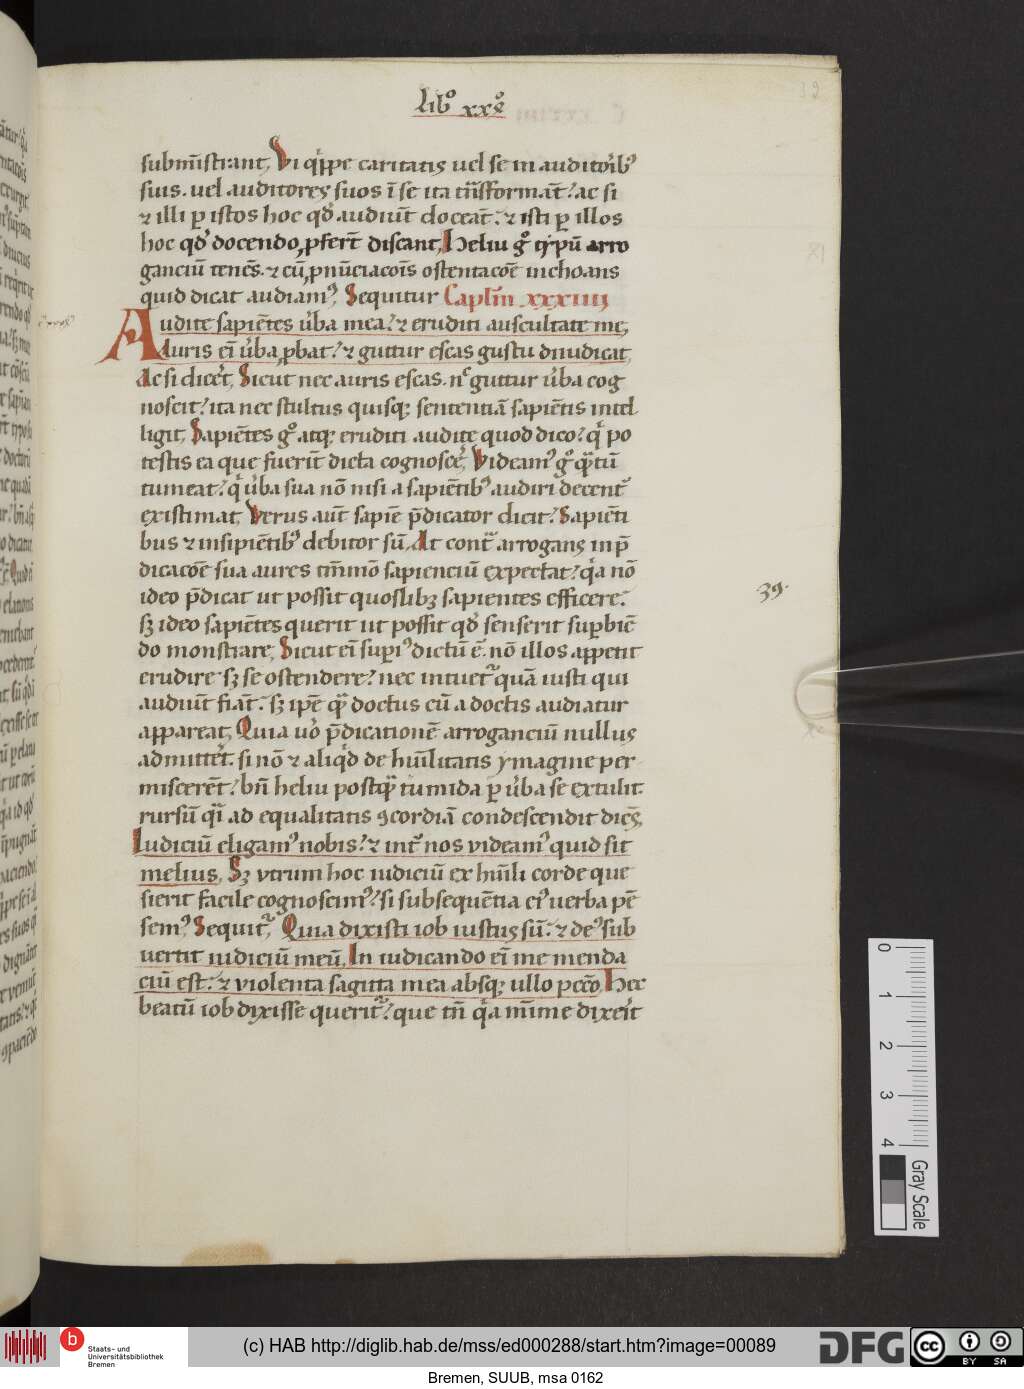 libº xxº
39
submīstrant. Vi q̈ppe caritatis uel se in auditorib⁹
suis. uel auditores suos ī se ita tn̄sformāt? ac si
⁊ illi ꝑ istos hoc qđ audiūt doceāt? ⁊ isti ꝑ illos
hoc qđ docendo ꝓferт̄ discant. Heliu gº tẏpū arro
ganciū tenēs. ⁊ eū ꝓnūciacōis ostentacōē inchoans
quid dicat audiam⁹. Sequitur Caplm̄ xxxiiii
Audite sapiētes ūba mea? ⁊ eruditi auscultate me,
Auris eī ūba ꝓbat? ⁊ guttur escas gustu diiudicat,
Ac si dicēt, Sicut nec auris escas. nͨ guttur ūba cog
noscit? ita nec stultus quisqꝫ sententiā sapiētis intel
ligit, Sapiētes gº atqꝫ eruditi audite quod dico? qͥ po
testis ea que fuerīt dicta cognoscē, Videam⁹ gº qͣtū
tumeat? qͥ ūba sua nō nisi a sapiētib⁹ audiri decent̄
existimat, Verus aūt sapiē p̄dicator dicit? Sapiēti
bus ⁊ insipiētib⁹ debitor sū. At contͣ arrogans in p̄
dicacōē sua aures tm̄mō sapienciū expectat? qͥa nō
ideo p̄dicat ut possit quoslibꝫ sapientes efficere?
sꝫ ideo sapiētes querit ut possit qđ senserit suꝑbiē
do monstrare, Sicut eī suꝑi⁹ dictū ē. nō illos appetit
erudire sꝫ se ostendere? nec intuetͬ quā iusti qui
audiūt fiāt? sꝫ ipē qͣ doctus cū a doctis audiatur
appareat, Quia uº p̄dicationē arroganciū nullus
admittēt. si nō ⁊ aliqͥd de hūilitatis ymagine per
miscerēt? bn̄ heliu postqͣ tumida ꝑ ūba se extulit
rursū qͣi ad equalitatis ꝯcordiā condescendit dicēs,
Iudiciū eligam⁹ nobis? ⁊ int̄ nos videam⁹ quid sit
melius, Sꝫ vtrum hoc iudiciū ex hūili corde que
sierit facile cognoscim⁹? si subsequētia ei⁹ uerba pē
sem⁹. Sequitͬ, Quia dixisti iob iustus sū? ⁊ de⁹ sub
uertit iudiciū meū, In iudicando eī me menda
ciū est? ⁊ violenta sagitta mea absqꝫ ullo pctō, Hec
beatū iob dixisse queritͬ? que tn̄ qͥa mīme dixēit
·39·
0 1 2 3 4
Gray Scale
b
Staats- und
Universitätsbibliothek
Bremen
(c) HAB http://diglib.hab.de/mss/ed000288/start.htm?image=00089
DFG
cc BY SA
Bremen, SUUB, msa 0162